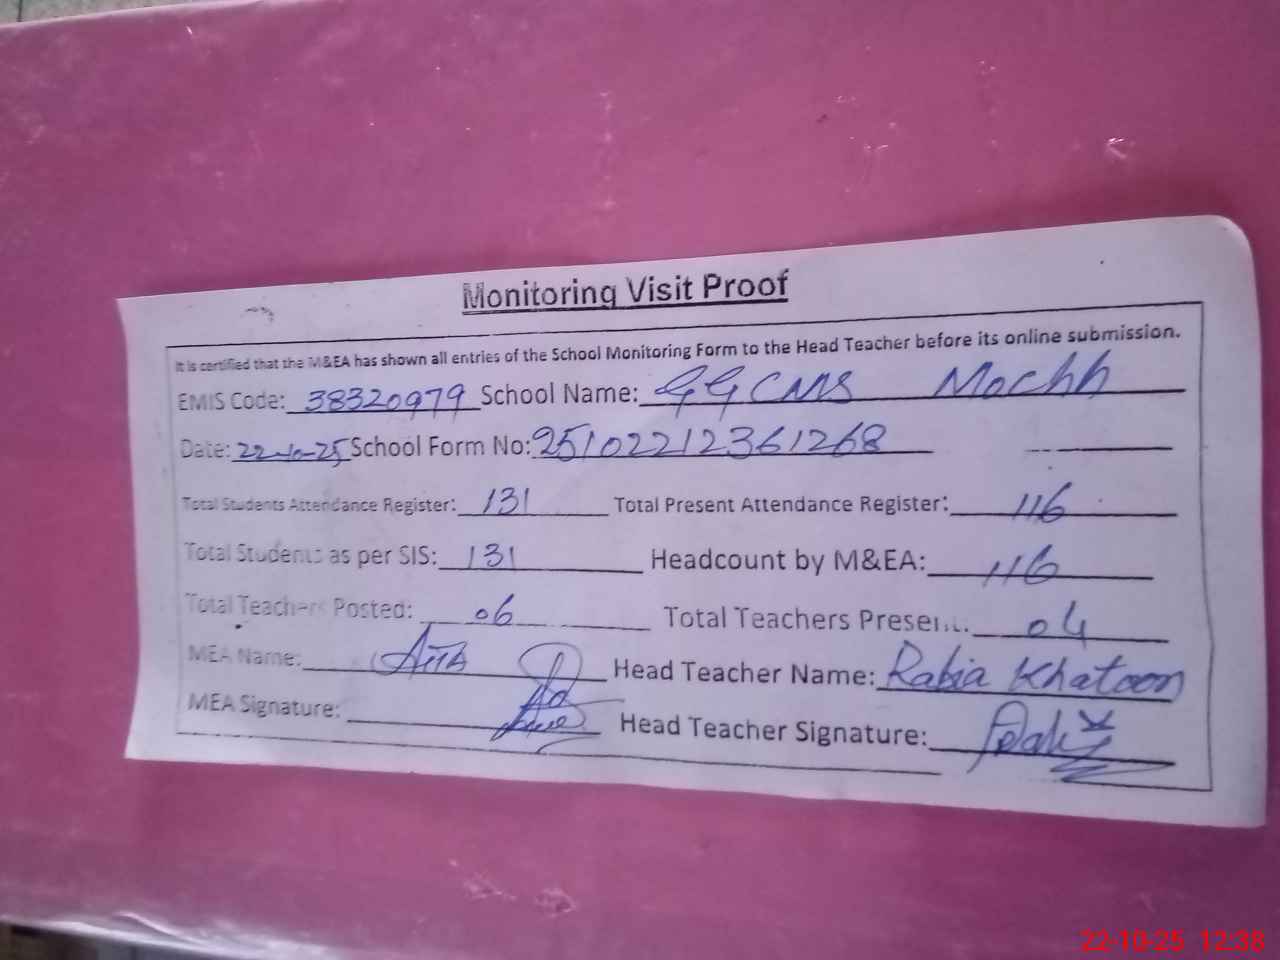 Monitoring Visit Proof
It is certified that the M&EA has shown all entries of the School Monitoring Form to the Head Teacher before its online submission.
EMIS Code: 38320979 School Name: GGCMS Mochh
Date: 22-10-25 School Form No: 25102212361268
Total Students Attendance Register: 131 Total Present Attendance Register: 116
Total Students as per SIS: 131 Headcount by M&EA: 116
Total Teachers Posted: 06 Total Teachers Present: 04
MEA Name: Head Teacher Name: Rabia Khatoon
MEA Signature: Head Teacher Signature:
22-10-25 12:38